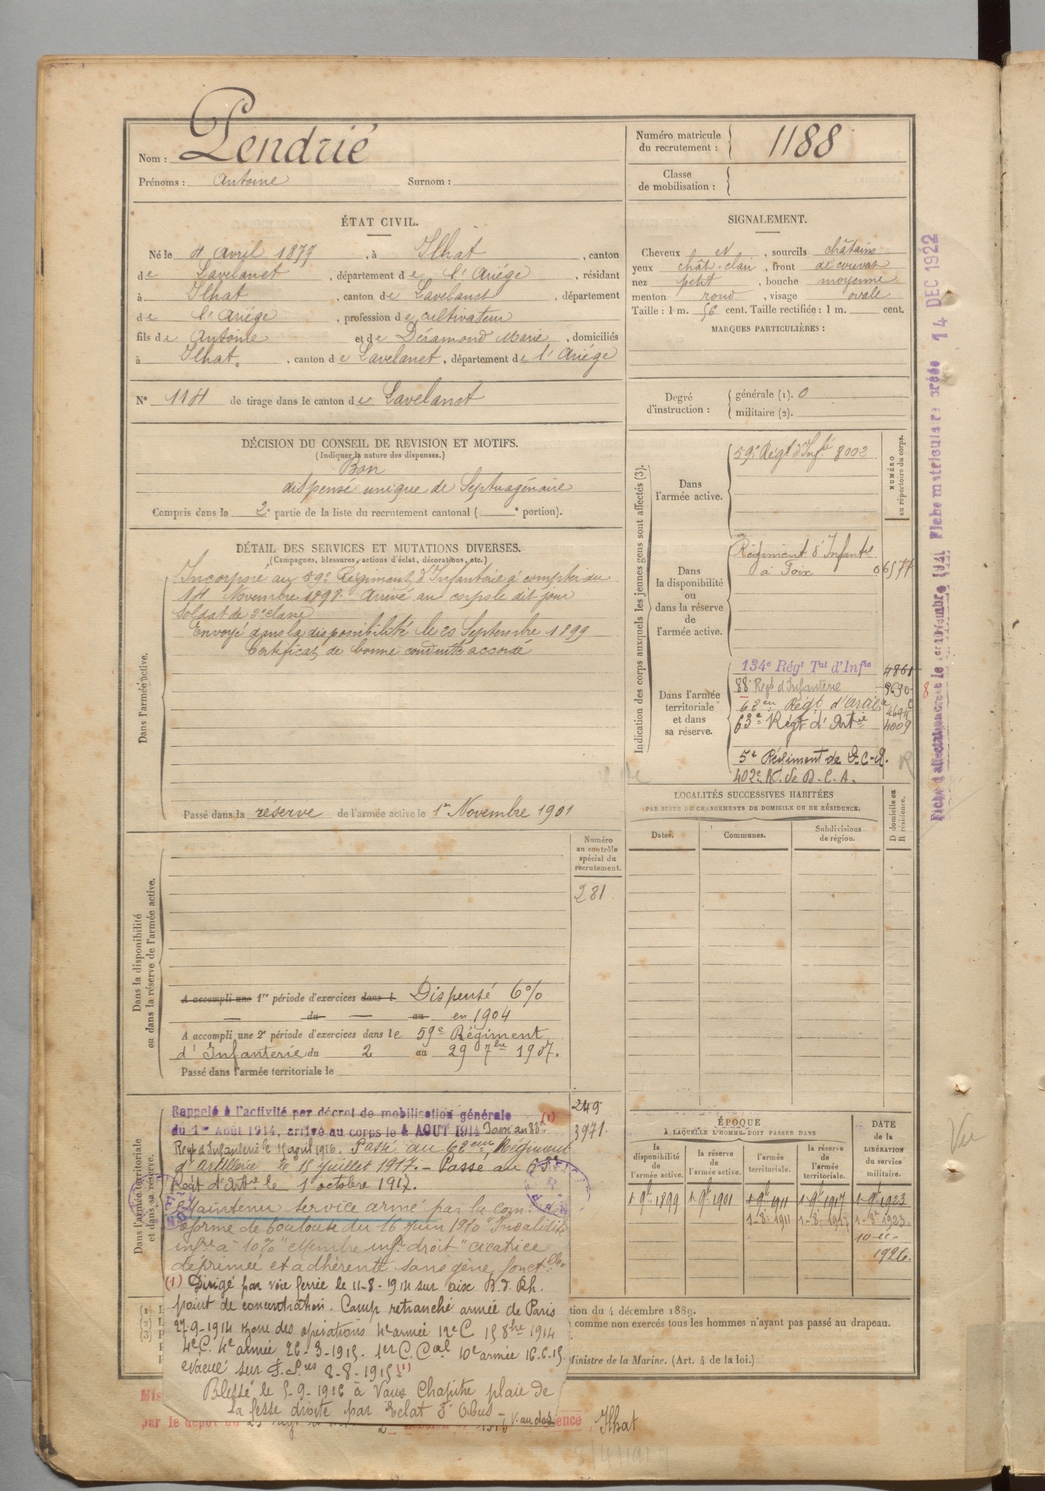 Nom : Pendrié
Prénoms : Antoine Surnom :
Numéro matricule du recrutement : 1188
Classe de mobilisation :
ÉTAT CIVIL.
Né le 4 avril 1877, à Ilhat, canton
de Lavelanet, département de l'Ariége, résidant
à Ilhat, canton de Lavelanet, département
de l'Ariége, profession de cultivateur
fils de Antoine et de Déramond Marie, domiciliés
à Ilhat, canton de Lavelanet, département de l'Ariége
N° 114 de tirage dans le canton de Lavelanet
SIGNALEMENT.
Cheveux et, sourcils châtains
yeux chât-clair, front découvert
nez petit, bouche moyenne
menton rond, visage ovale
Taille : 1 m. 56 cent. Taille rectifiée : 1 m. cent.
MARQUES PARTICULIÈRES :
Degré d'instruction :
générale (1). 0
militaire (2).
DÉCISION DU CONSEIL DE REVISION ET MOTIFS.
(Indiquer la nature des dispenses.)
Bon
dispensé unique de Septuagénaire
Compris dans la 2e partie de la liste du recrutement cantonal ( e portion).
DÉTAIL DES SERVICES ET MUTATIONS DIVERSES.
(Campagnes, blessures, actions d'éclat, décorations, etc.)
Dans l'armée active.
Incorporé au 59e Régiment d'Infanterie à compter du
14 Novembre 1898 Arrivé au corps le dit jour
soldat de 2e classe
Envoyé dans la disponibilité le 20 Septembre 1899
Certificat de bonne conduite accordé
Passé dans la réserve de l'armée active le 1er Novembre 1901
Indication des corps auxquels les jeunes gens sont affectés (3).
NUMÉRO au répertoire du corps.
Dans l'armée active.
59e Régt d'Infie 8002
Dans la disponibilité ou dans la réserve de l'armée active.
Régiment d'Infantie
à Foix 06577
Dans l'armée territoriale et dans sa réserve.
134e Régt Tal d'Infie 4861
88 Regt d'Infanterie
62ème Régt d'artie
63e Régt d'Artie 4009
5e Régiment de
402e R. de D.C.A.
LOCALITÉS SUCCESSIVES HABITÉES
PAR SUITE DE CHANGEMENTS DE DOMICILE OU DE RÉSIDENCE.
D domicile ou R résidence.
Dates. Communes. Subdivisions de région.
Numéro au contrôle spécial du recrutement.
281
Dans la disponibilité ou dans la réserve de l'armée active.
A accompli une 1re période d'exercices dans l Dispensé 6%
du au en 1904
A accompli une 2e période d'exercices dans le 59e Régiment
d'Infanterie du 2 au 29 7bre 1907.
Passé dans l'armée territoriale le
Dans l'armée territoriale et dans sa réserve.
249
3971
Rappelé à l'activité par décret de mobilisation générale
du 1er Août 1914, arrivé au corps le 4 AOUT 1914 Passé au 88e (1)
Regt d'Infanterie le 15 avril 1916. Passé au 62ème Régiment
d'artillerie le 15 juillet 1917. - Passé au 63e
Régt d'Artie le 1 octobre 1917.
Maintenu service armé par la com.
réforme de Toulouse du 16 juin 1920 "Invalidité
infre à 10% "Membre inf. droit" cicatrice
déprimée et adhérente sans gêne fonctelle.
(1) Dirigé par voie ferrée le 11-8-1914 sur aix B.d.Rh.
point de concentration. Camp retranché armée de Paris
27-9-1914 zone des opérations 4e armée 12e C 15 8bre 1914
4e C. 4e armée 26-3-1915. 1er C. Cal 10e armée 16-6-15
evacué sur 8-8-1915 (1)
Blessé le 5-9-1916 à Vaux Chapitre plaie de
la fesse droite par Eclat d'Obus
ÉPOQUE
A LAQUELLE L'HOMME DOIT PASSER DANS
la disponibilité de l'armée active.
la réserve de l'armée active.
l'armée territoriale.
la réserve de l'armée territoriale.
DATE de la LIBÉRATION du service militaire.
1-9bre 1899 1-9bre 1901 1-9bre 1911 1-9bre 1917 1-9bre 1923
1-8-1911
1926
tion du 4 décembre 1889.
comme non exercés tous les hommes n'ayant pas passé au drapeau.
Ministre de la Marine. (Art. 4 de la loi.)
par le dépôt
Ilhat
Fiche matricule créée 14 DEC 1922